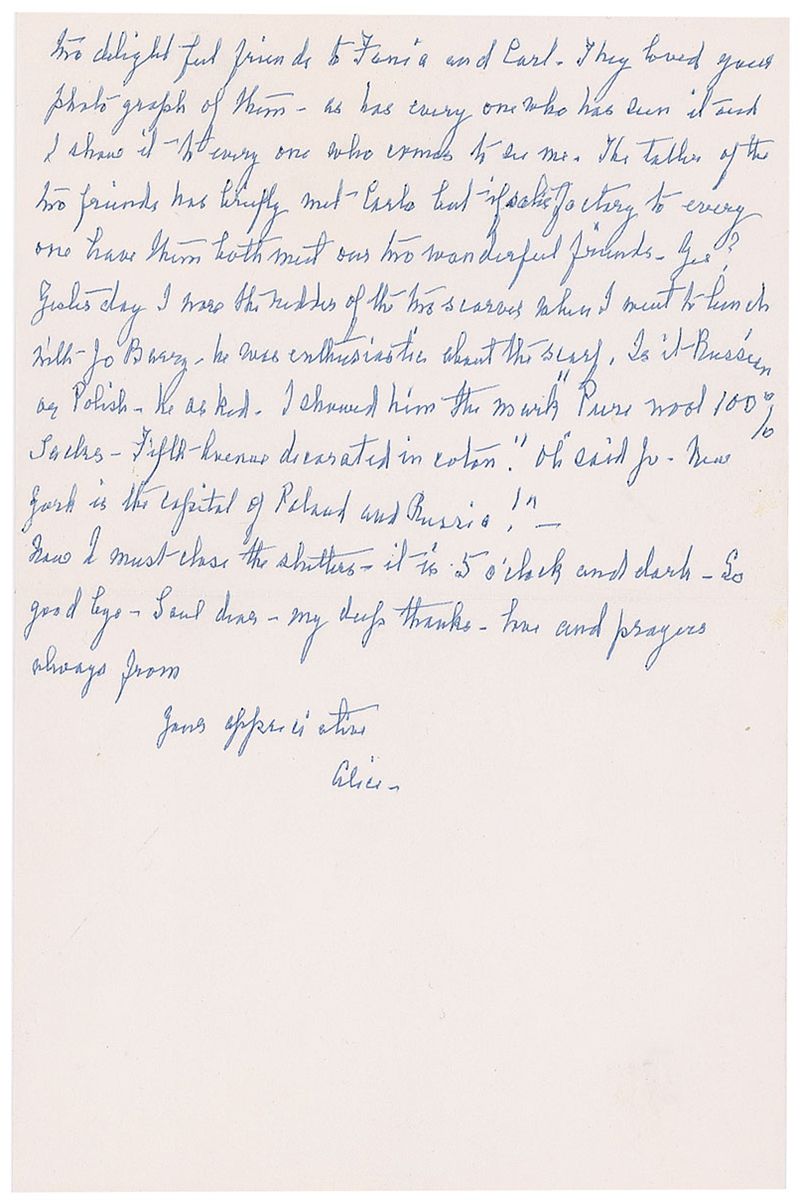 two delightful friends to Fania and Carl - They loved your
photograph of them - as has every one who has seen it and
I show it to every one who comes to see me. The taller of the
two friends has briefly met Carlo but if satisfactory to every
one have them both meet our two wonderful friends - Yes?
Yesterday I wore the redder of the two scarves when I went to lunch
with Jo Barry - he was enthusiastic about the scarf. Is it Russian
or Polish - he asked. I showed him the mark "Pure wool 100%
Sachs - Fifth Avenue decorated in coton." Oh" said Jo - New
York is the capital of Poland and Russia!" -
Now I must close the shutters - it is 5 o'clock and dark - So
good bye - Saul dear - my deep thanks - love and prayers
always from
Your appreciative
Alice -